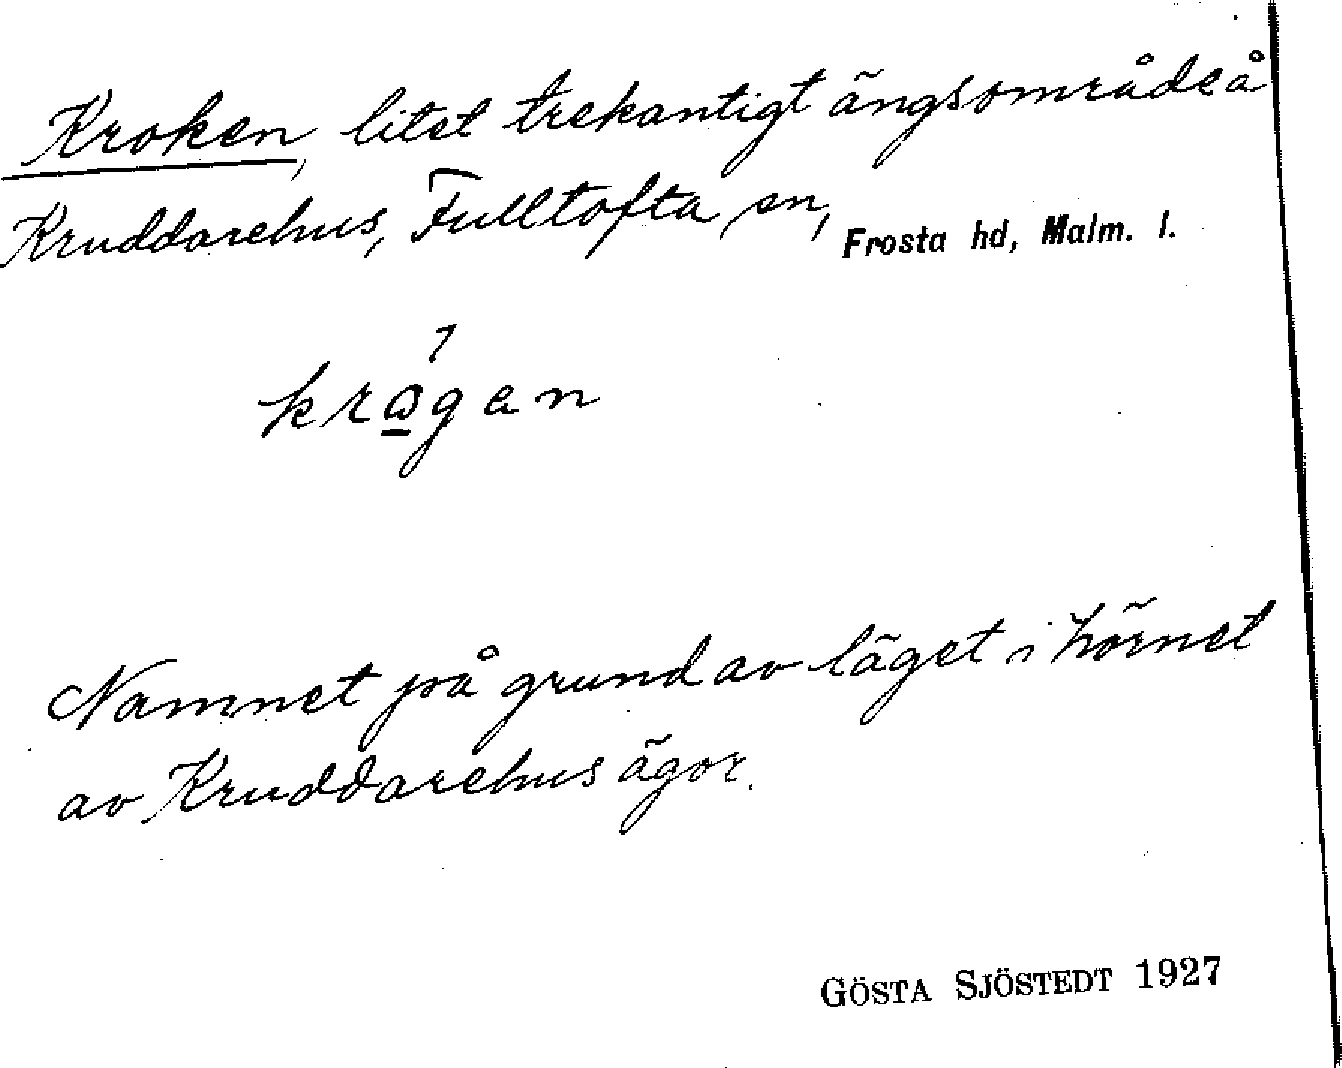 Kroken, litet trekantigt ängsområde å
Kruddarehus, Fulltofta sn, Frosta hd, Malm. l.
krågan
Namnet på grund av läget i hörnet
av Kruddarehus ägor.
GÖSTA SJÖSTEDT 1927